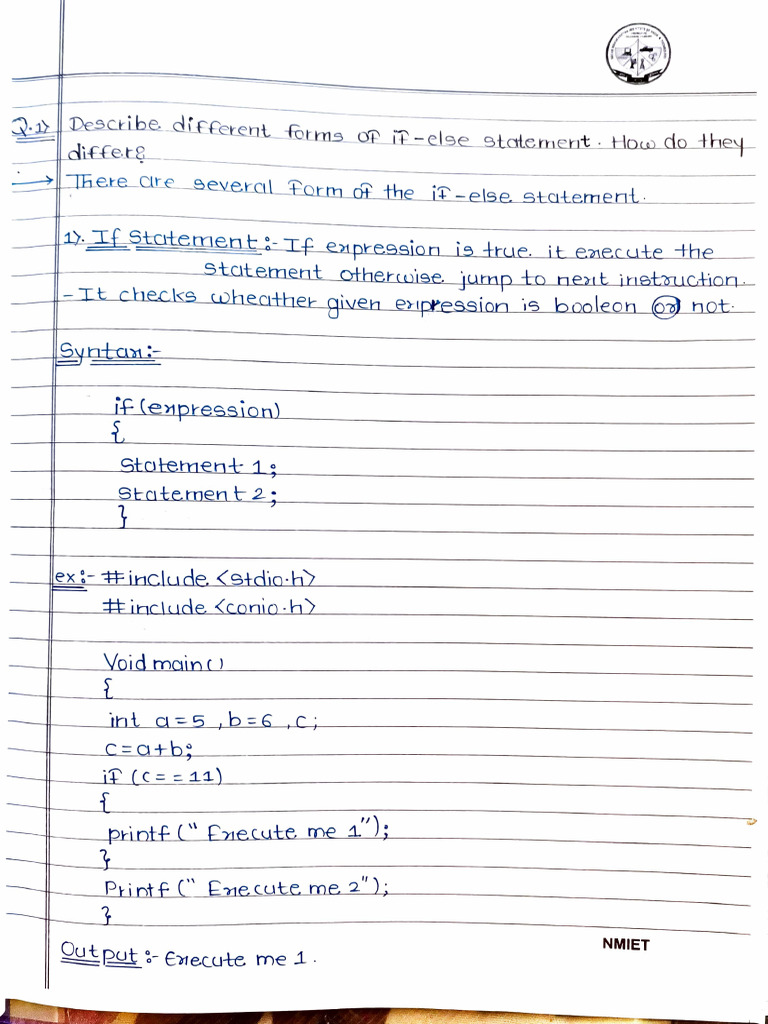 Q.1) Describe different forms of if-else statement. How do they
differ?
→ There are several form of the if-else statement.
1). If Statement :- If expression is true. it execute the
statement otherwise jump to next instruction.
- It checks wheather given expression is booleon or not.
Syntax:-
if (expression)
{
statement 1;
statement 2;
}
ex:- #include <stdio.h>
#include <conio.h>
Void main()
{
int a=5 ,b=6 ,c;
c=a+b;
if (c==11)
{
printf (" Execute me 1");
}
Printf (" Execute me 2");
}
Output :- Execute me 1.
NMIET